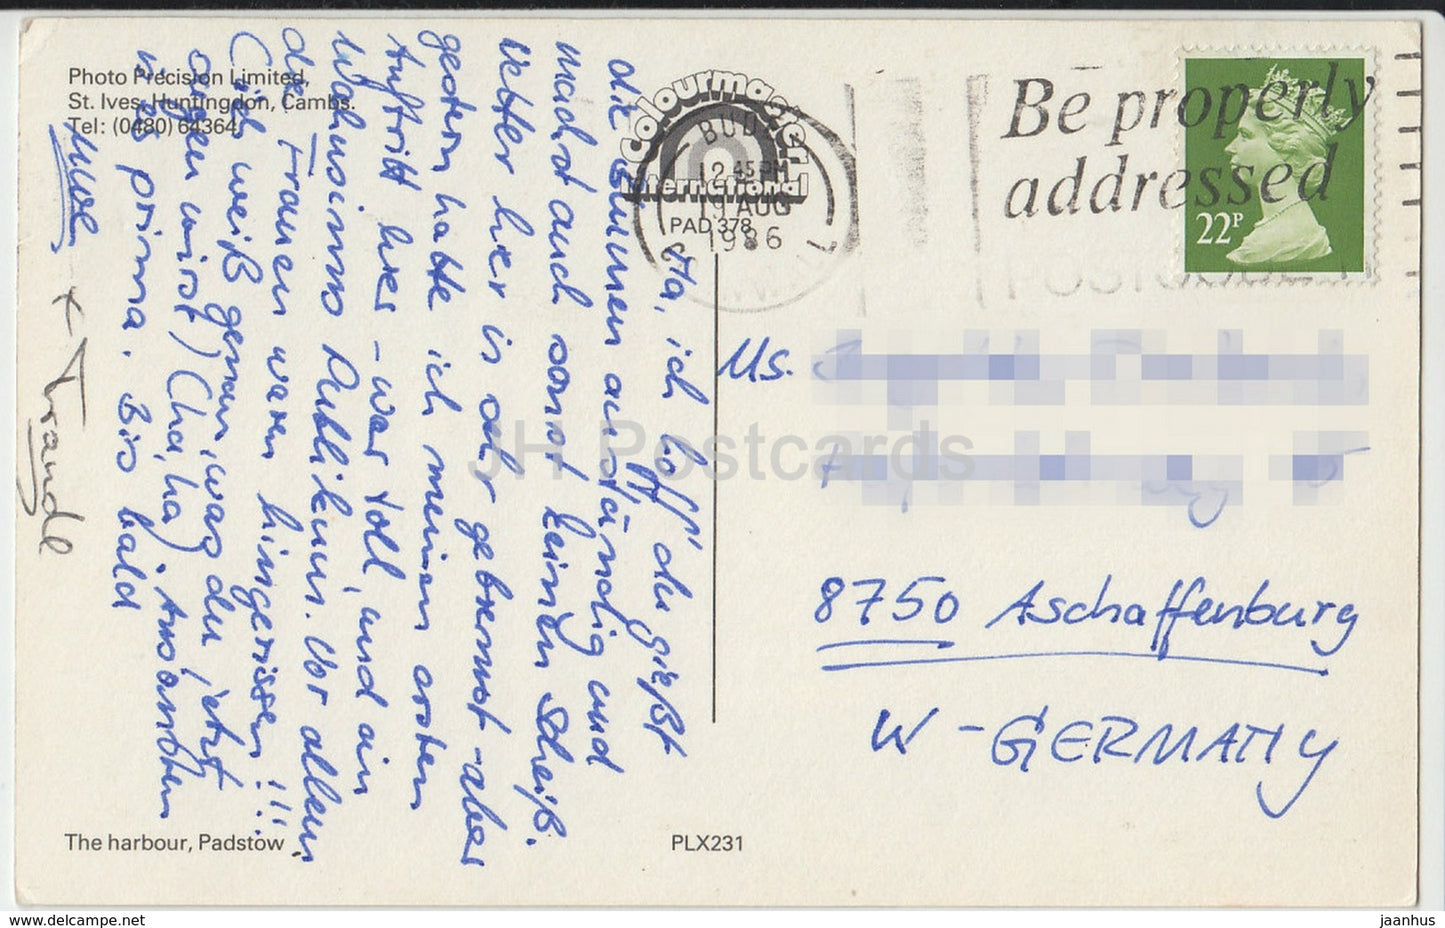 Photo Precision Limited,
St. Ives, Huntingdon, Cambs.
Tel: (0480) 64364
Colourmaster
International
PAD 378
BUDE
12 45 PM
19 AUG
1986
Be properly
addressed
22P
Ha, ich hoff' du gießt
die Blumen anständig und
machst auch sonst keinen Scheiß.
Wetter hier is sehr gebremst - aber
gestern hatte ich meinen ersten
Auftritt hier - war toll, und ein
Wahnsinns Publikum. Vor allem
die Frauen waren hingerissen!!!
(Ich weiß genau, was du jetzt
sagen wirst) (Cha, ha). Ansonsten
is es prima. Bis bald
Uwe
+ Frandl
Ms.
8750 Aschaffenburg
W - GERMANY
JH Postcards
The harbour, Padstow
PLX231
www.delcampe.net
jaanhus